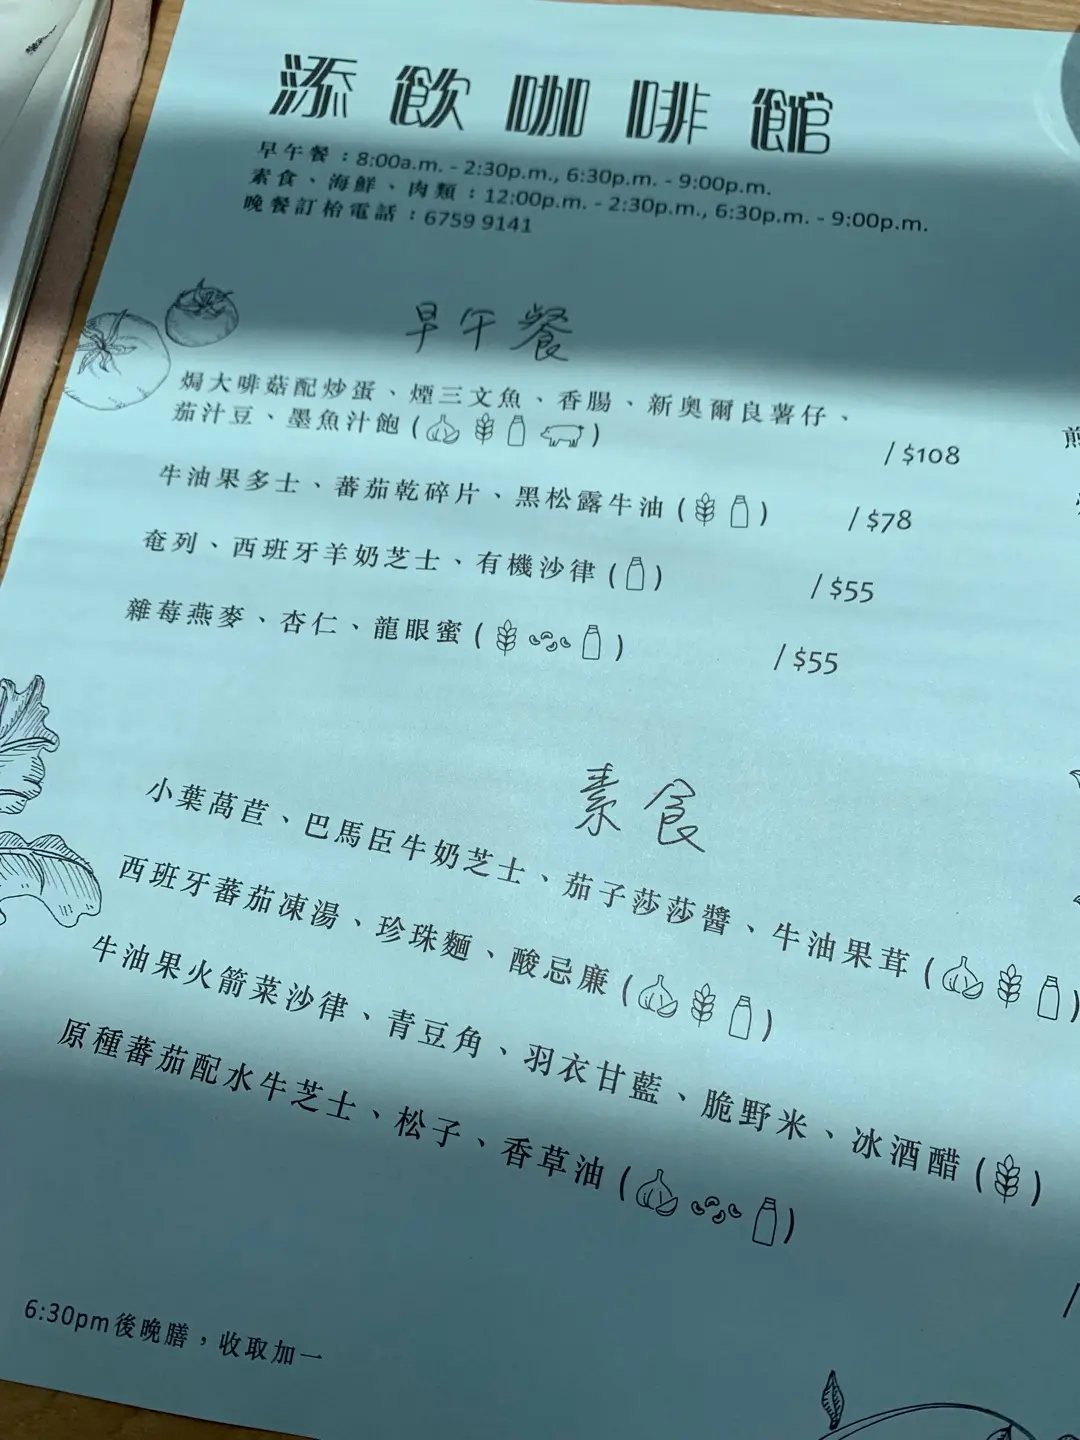 添飲咖啡館
早午餐：8:00a.m. - 2:30p.m., 6:30p.m. - 9:00p.m.
素食、海鮮、肉類：12:00p.m. - 2:30p.m., 6:30p.m. - 9:00p.m.
晚餐訂枱電話：6759 9141
早午餐
焗大啡菇配炒蛋、煙三文魚、香腸、新奧爾良薯仔、
茄汁豆、墨魚汁飽 ( ) / $108
牛油果多士、蕃茄乾碎片、黑松露牛油 ( ) / $78
奄列、西班牙羊奶芝士、有機沙律 ( ) / $55
雜莓燕麥、杏仁、龍眼蜜 ( ) / $55
素食
小葉萵苣、巴馬臣牛奶芝士、茄子莎莎醬、牛油果茸 ( )
西班牙蕃茄凍湯、珍珠麵、酸忌廉 ( )
牛油果火箭菜沙律、青豆角、羽衣甘藍、脆野米、冰酒醋 ( )
原種蕃茄配水牛芝士、松子、香草油 ( )
/
6:30pm後晚膳，收取加一
煎